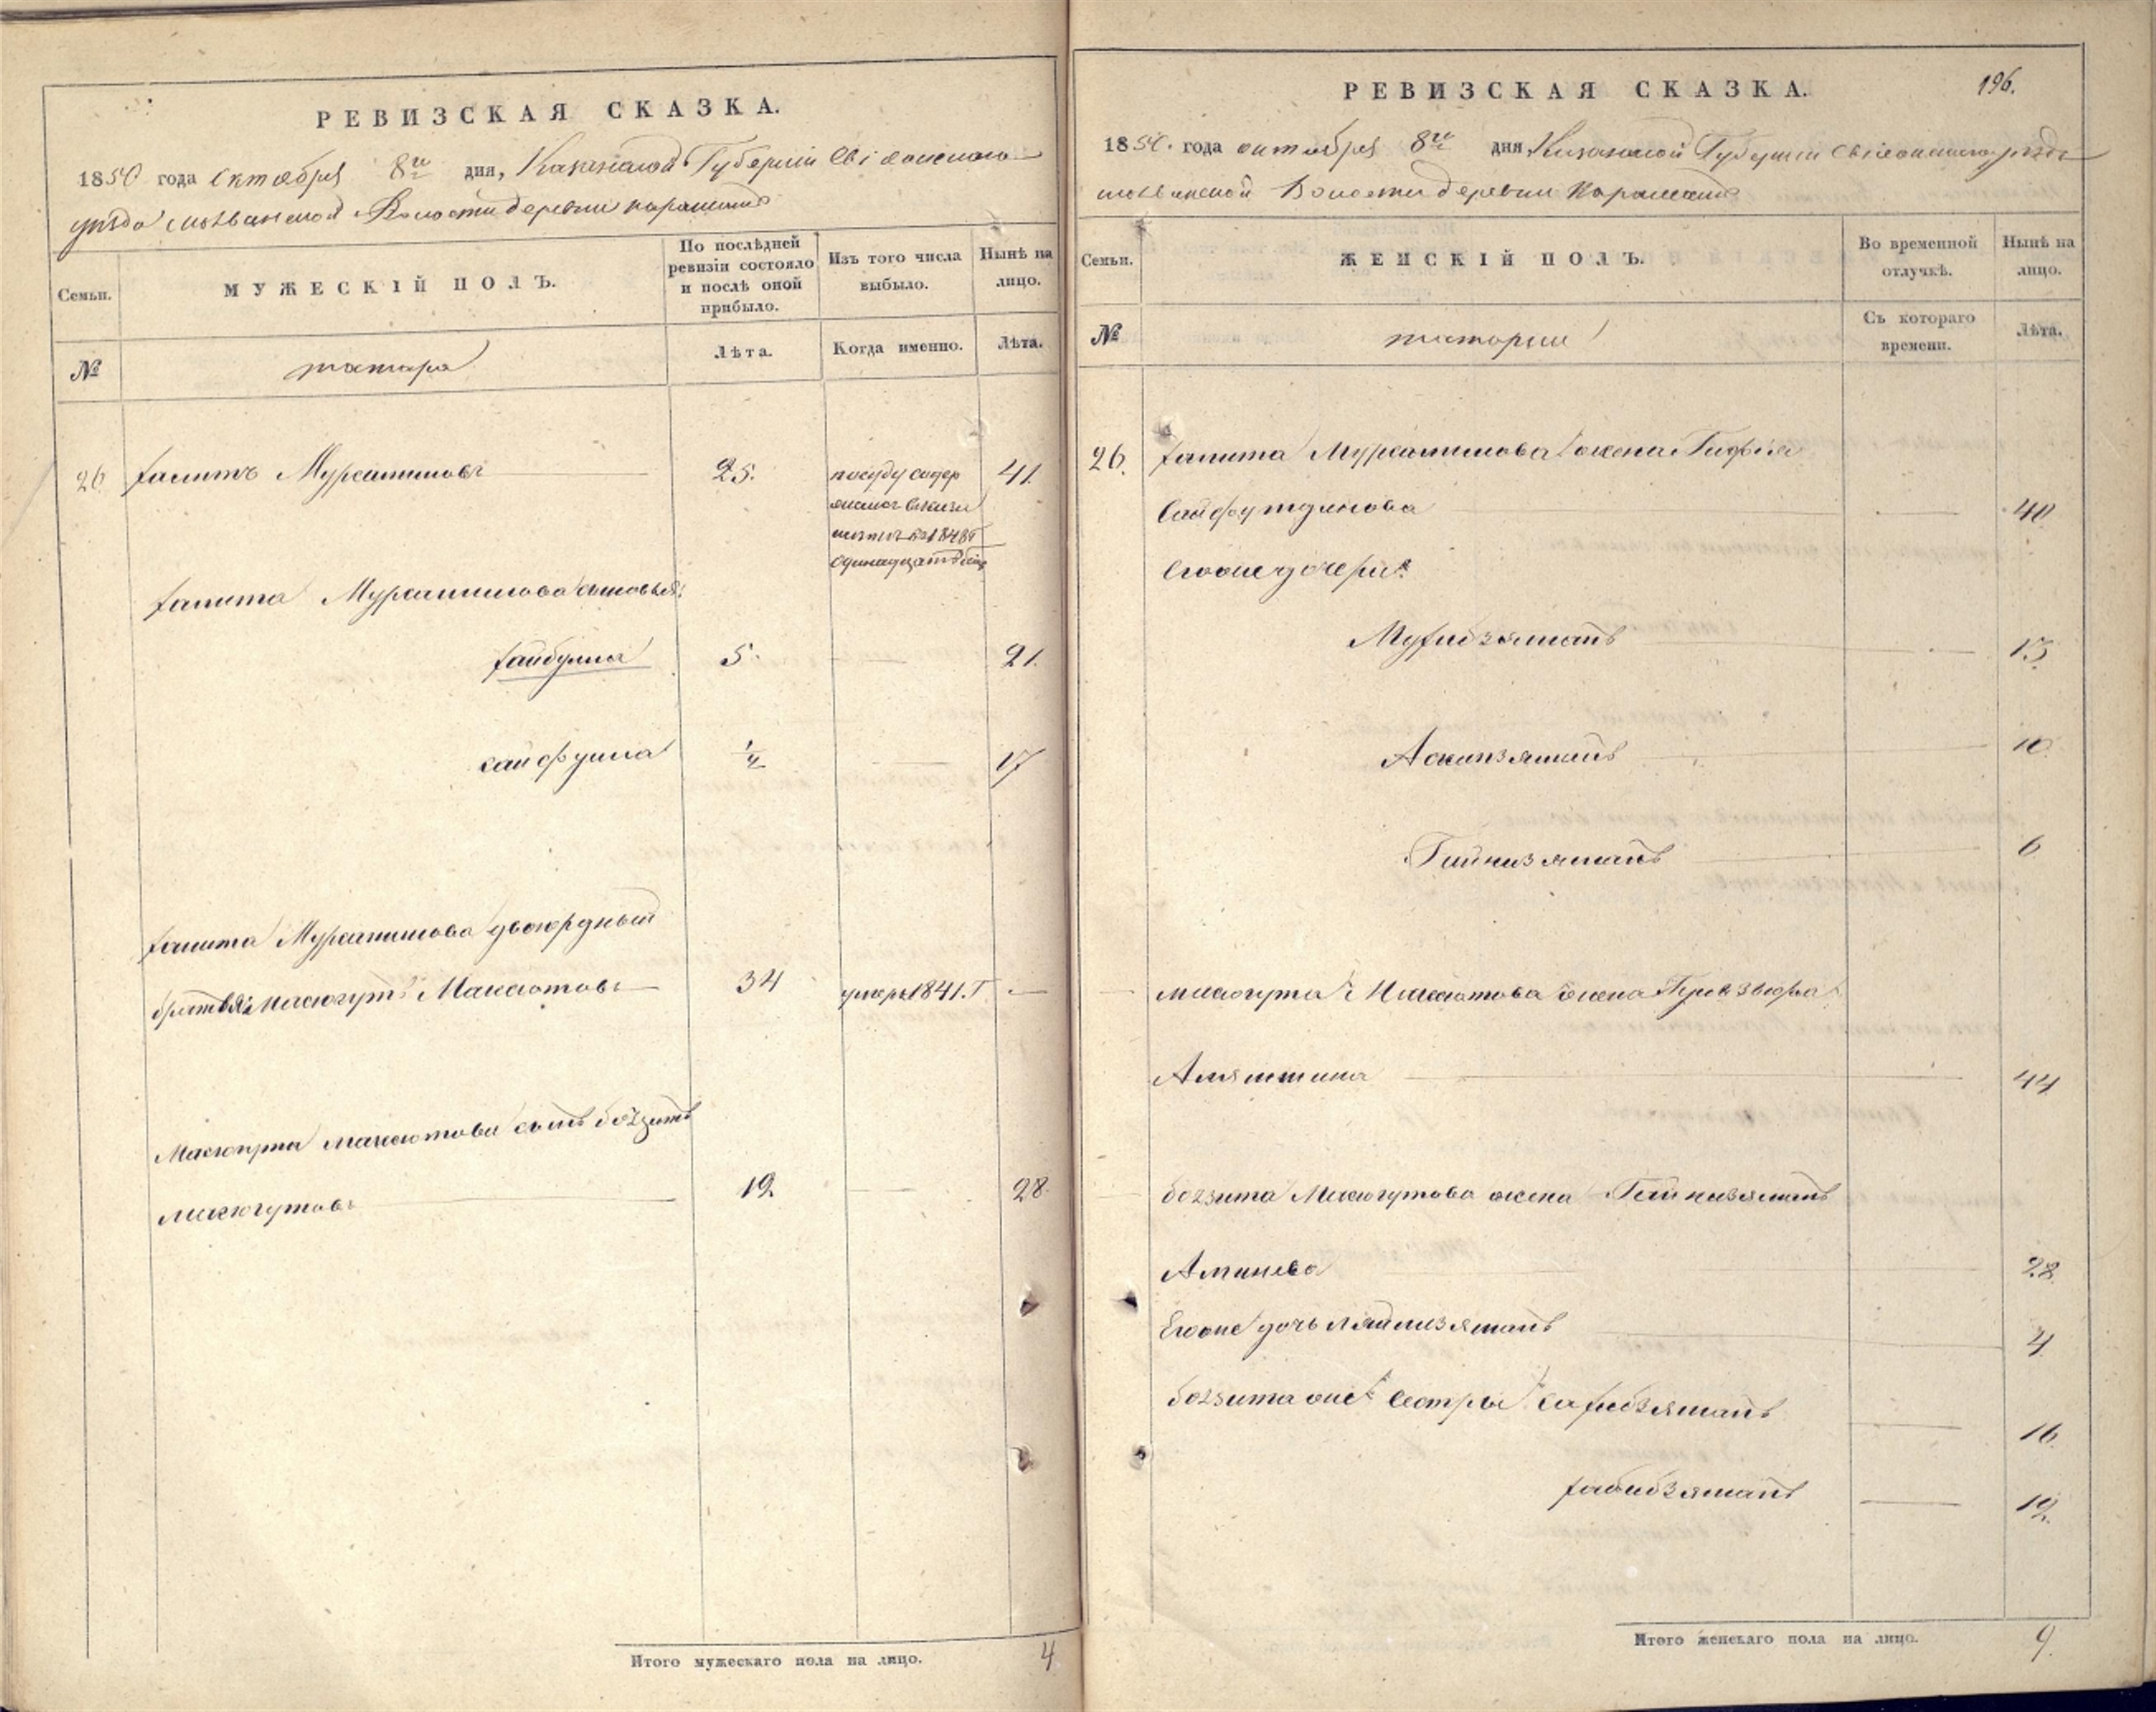 РЕВИЗСКАЯ СКАЗКА.
1850 года Октября 8го дня, Казанской Губернии Свіяжскаго
уезда Волости деревни
Семьи.
МУЖЕСКІЙ ПОЛЪ.
По послѣдней
ревизіи состояло
и послѣ оной
прибыло.
Изъ того числа
выбыло.
Нынѣ на
лицо.
№
татара
Лѣта.
Когда именно.
Лѣта.
26 Халитъ Мурсалимовъ 25. 41
1848
Халита Мурсалимова сыновья:
Хайбулла 5. 21.
сайфулла 1/4 17
Халита Мурсалимова двоюрдный
братья Масюгутъ Максютовъ 34 умеръ 1841.Г —
Масюгута максютова сынъ богзитъ
масюгутовъ 12 28
Итого мужескаго пола на лицо. 4
РЕВИЗСКАЯ СКАЗКА. 196.
1850. года октября 8го дня, Казанской Губернии Свіяжскаго уезда
Волости деревни
Семьи.
ЖЕНСКІЙ ПОЛЪ.
Во временной
отлучкѣ.
Нынѣ на
лицо.
№
татарки
Съ котораго
времени.
Лѣта.
26. Халита Мурсалимова жена
Сайфутдинова 40
Егоже дочери:
Мухибзямалъ 13
10
Гайнизямалъ 6
масюгута Максютова жена
44
богзита Масюгутова жена Гайнизямалъ
Аминева 28
Егоже дочь ляйлизямалъ 4
богзита же сестры Сахибзямалъ
16
Хабибзямалъ 12
Итого женскаго пола на лицо. 9.